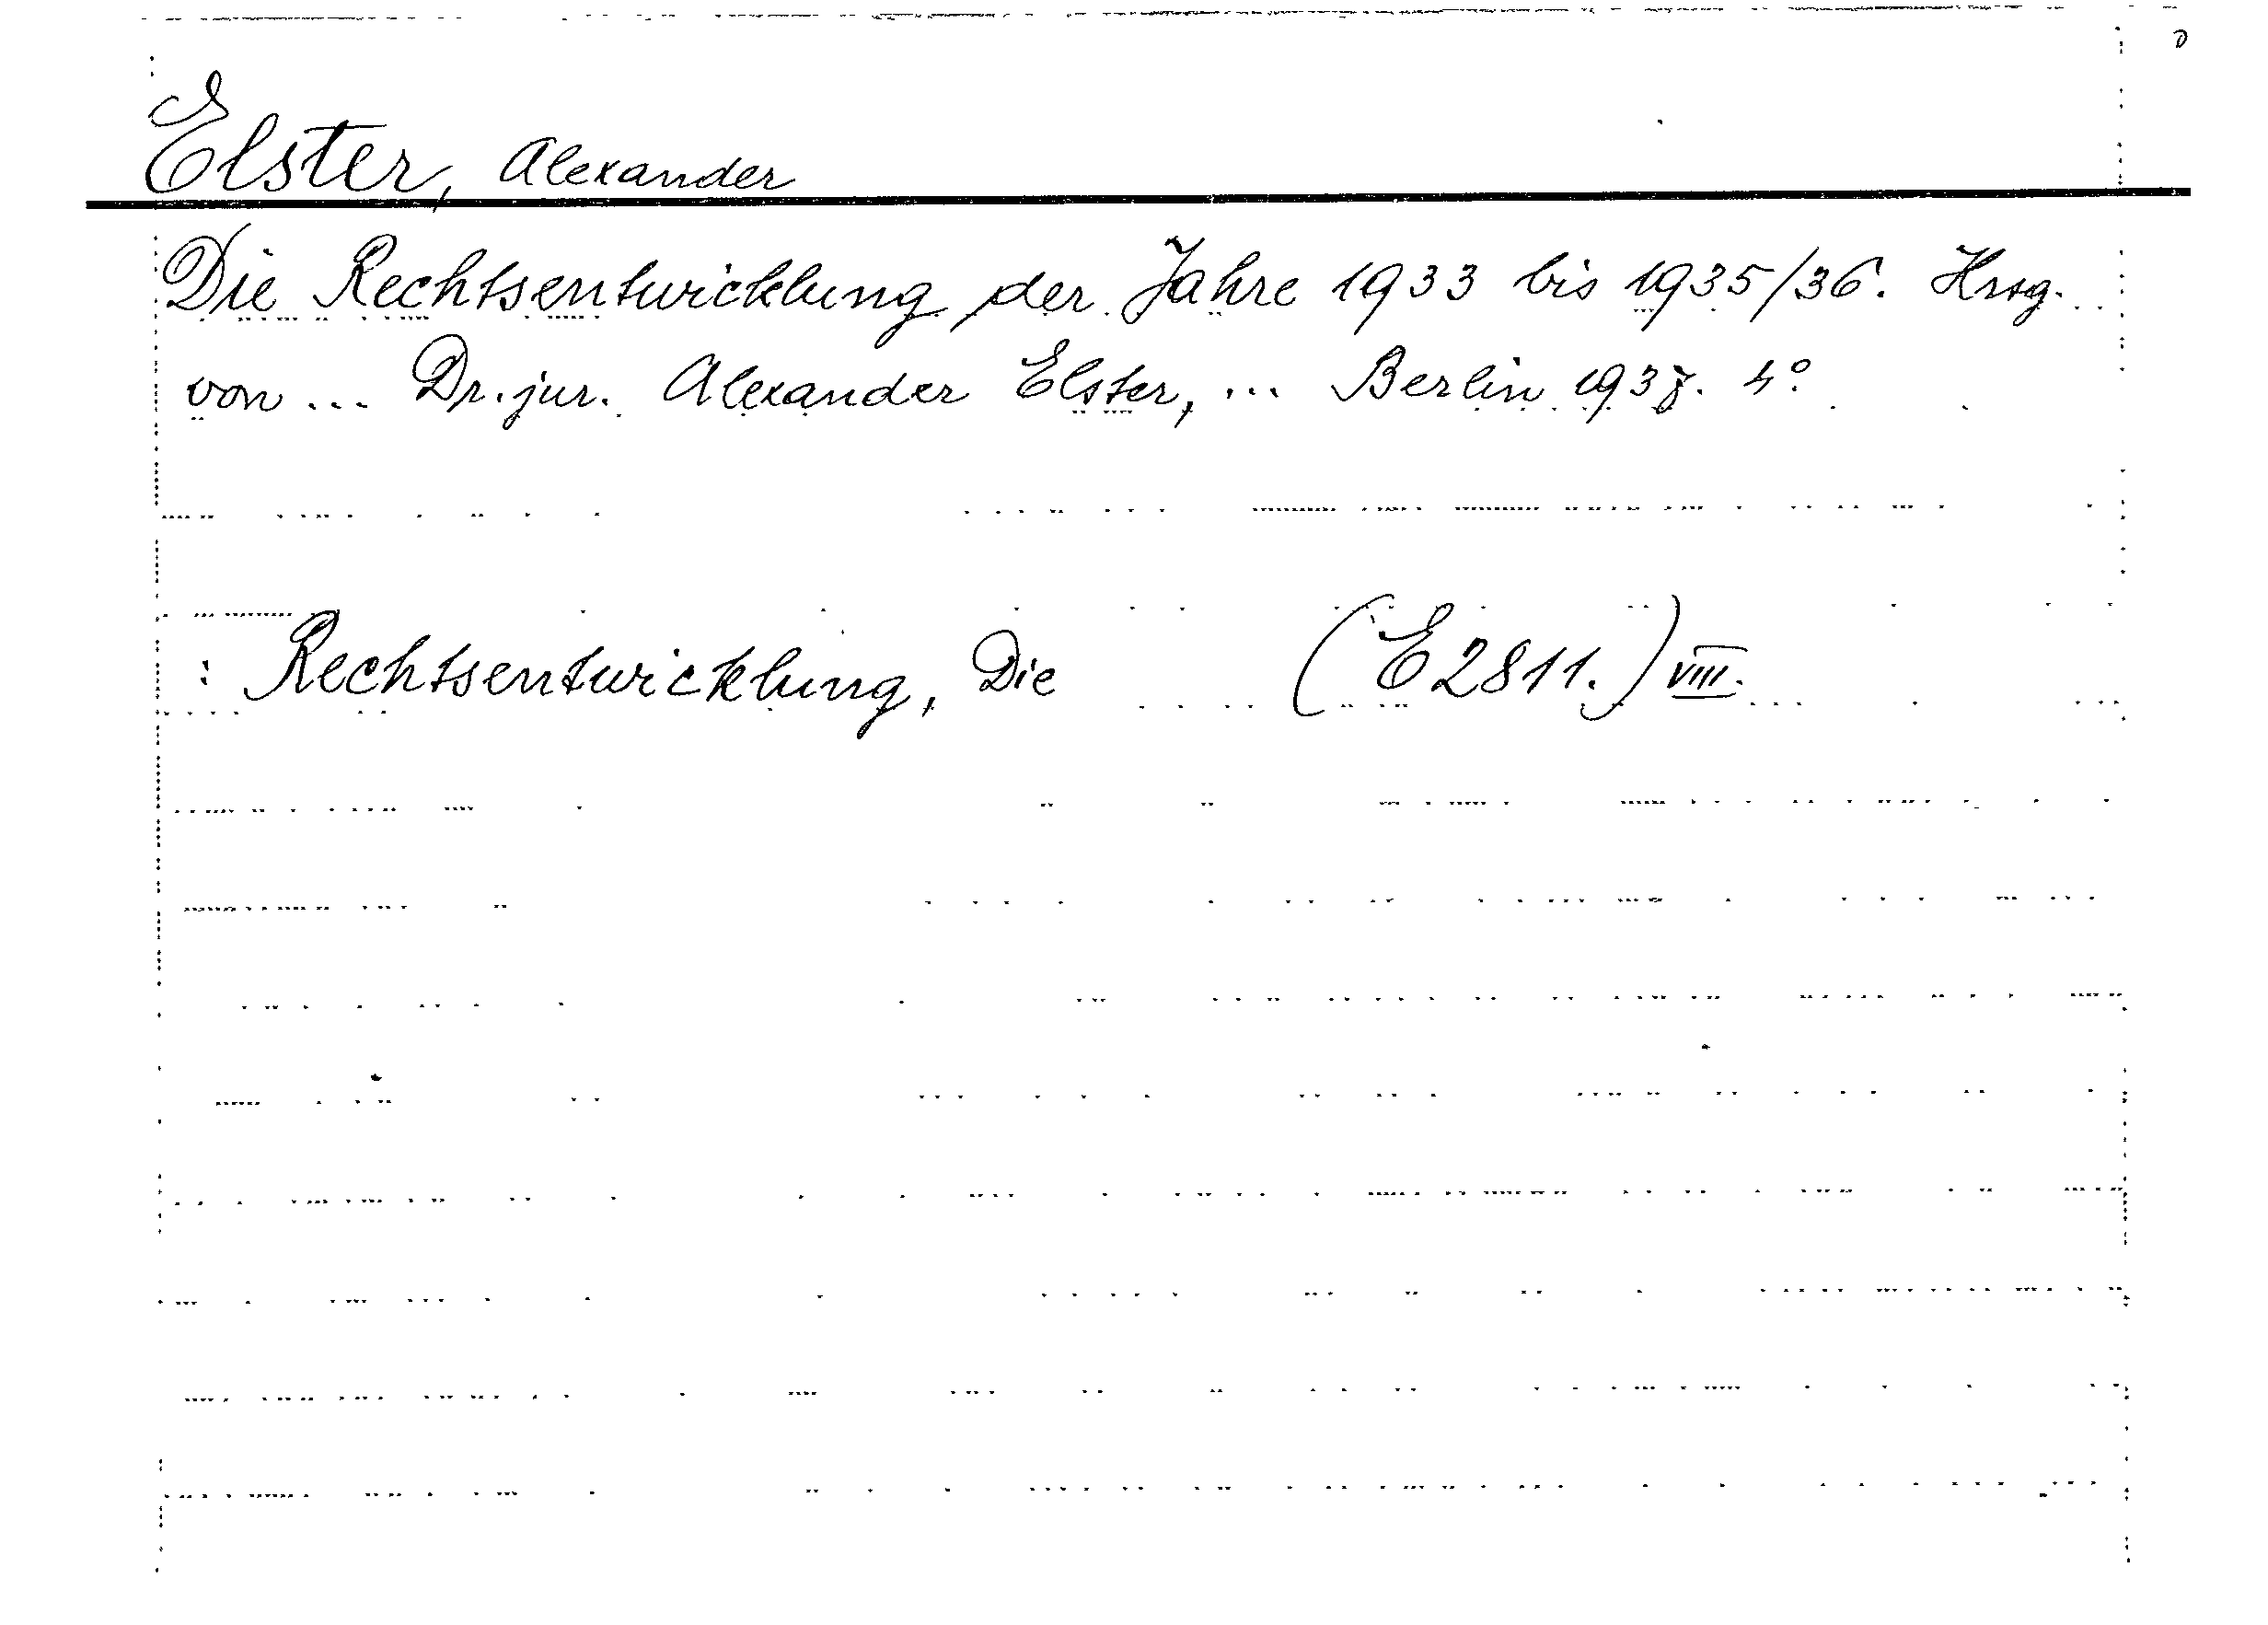 Elster, Alexander
Die Rechtsentwicklung der Jahre 1933 bis 1935/36. Hrsg.
von ... Dr. jur. Alexander Elster, ... Berlin 1937. 4°.
: Rechtsentwicklung, Die (E 2811.) VIII.